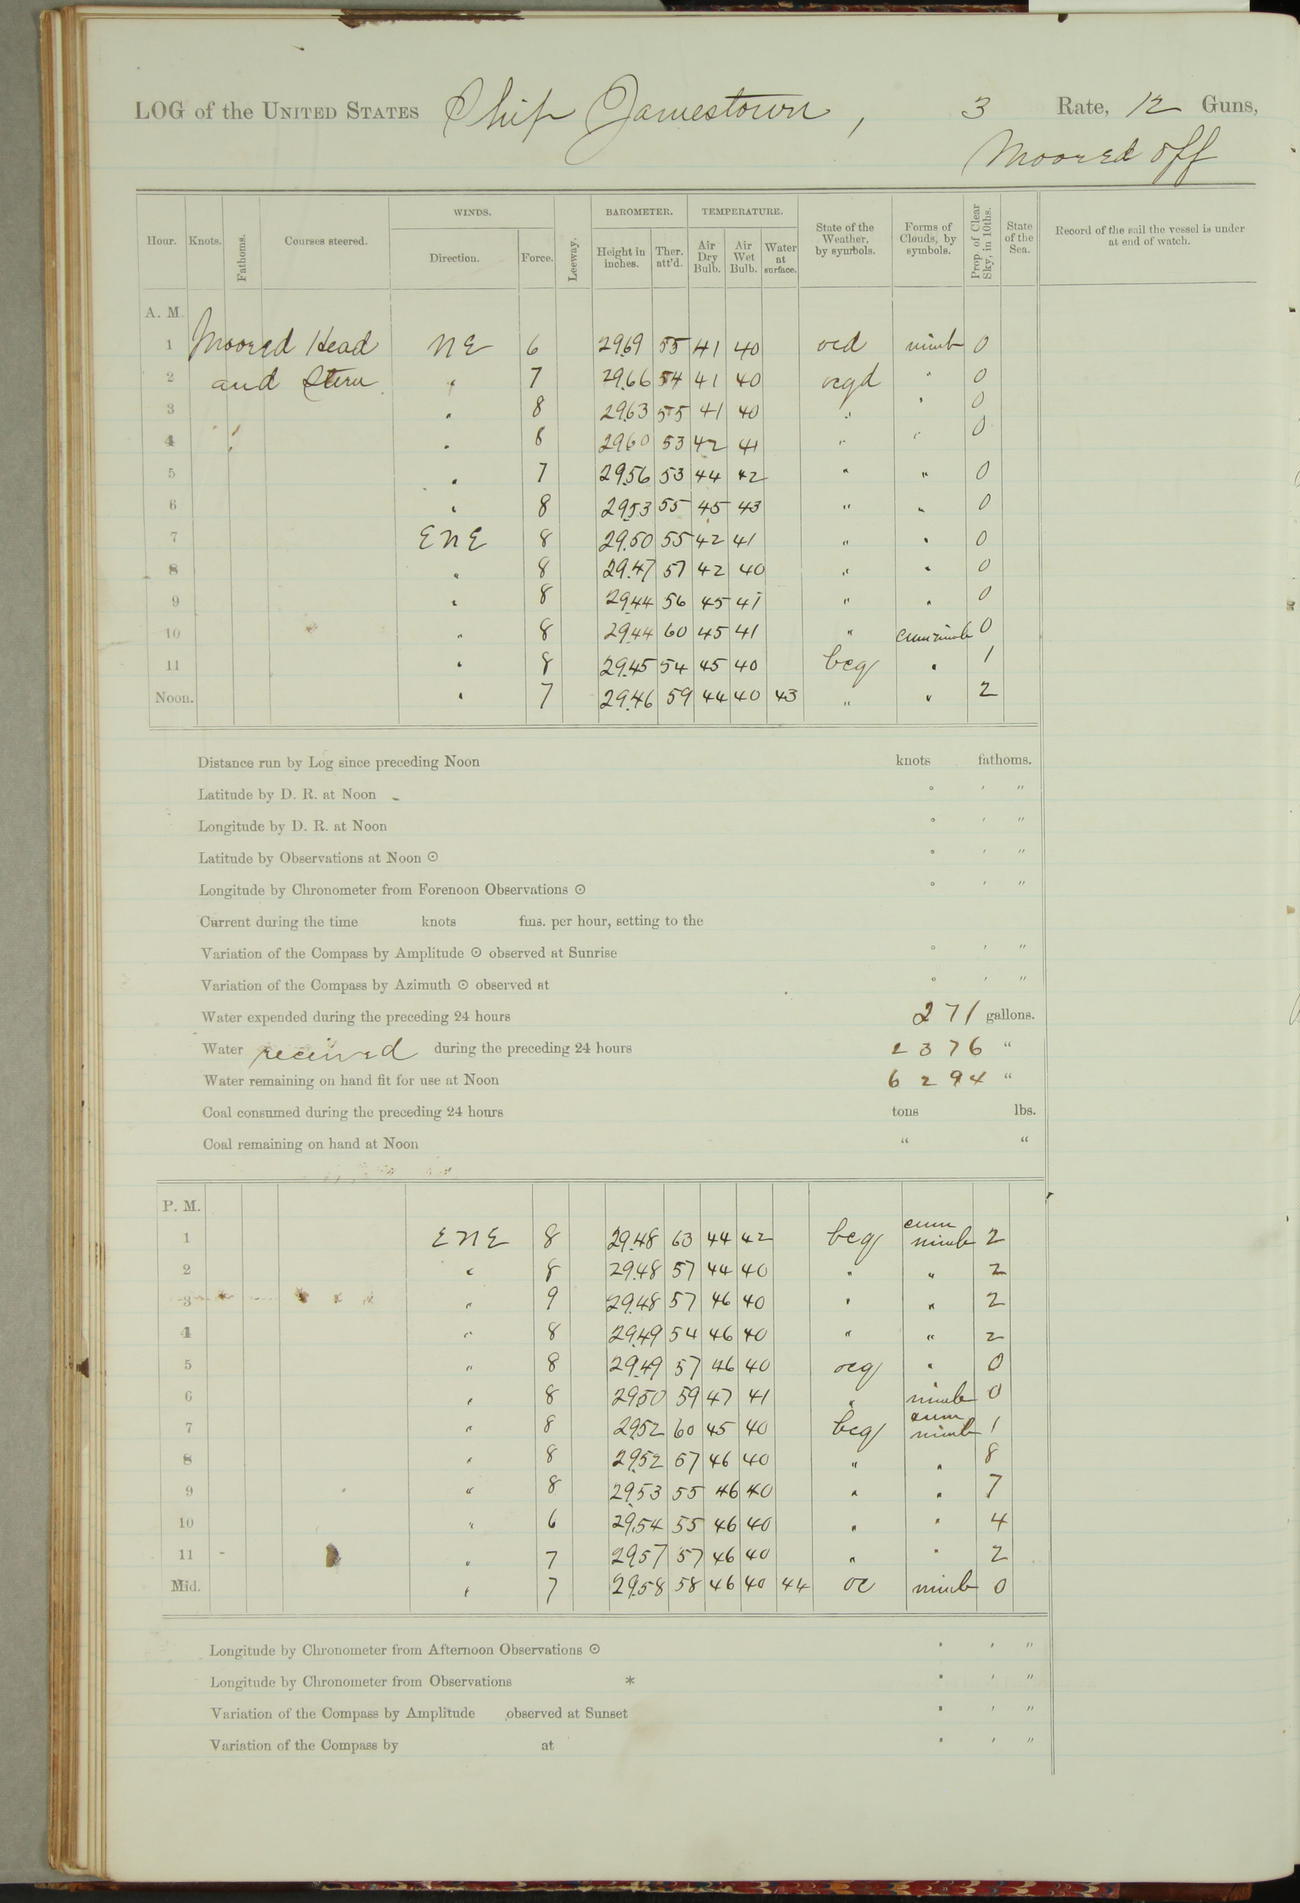 LOG of the UNITED STATES Ship Jamestown, 3 Rate, 12 Guns,
Moored off
Hour. Knots. Fathoms. Courses steered. WINDS. Direction. Force. Leeway. BAROMETER. Height in inches. Ther. att'd. TEMPERATURE. Air Dry Bulb. Air Wet Bulb. Water at surface. State of the Weather, by symbols. Forms of Clouds, by symbols. Prop. of Clear Sky, in 10ths. State of the Sea. Record of the sail the vessel is under at end of watch.
A. M.
1 Moored Head NE 6 29.69 55 41 40 ocd nimb 0
2 and Stern " 7 29.66 54 41 40 ocgd " 0
3 " 8 29.63 55 41 40 " " 0
4 " 8 29.60 53 42 41 " " 0
5 " 7 29.56 53 44 42 " " 0
6 " 8 29.53 55 45 43 " " 0
7 ENE 8 29.50 55 42 41 " " 0
8 " 8 29.47 57 42 40 " " 0
9 " 8 29.44 56 45 41 " " 0
10 " 8 29.44 60 45 41 " cum nimb 0
11 " 8 29.45 54 45 40 bcq " 1
Noon. " 7 29.46 59 44 40 43 " " 2
Distance run by Log since preceding Noon knots fathoms.
Latitude by D. R. at Noon ° ′ ″
Longitude by D. R. at Noon ° ′ ″
Latitude by Observations at Noon ⊙ ° ′ ″
Longitude by Chronometer from Forenoon Observations ⊙ ° ′ ″
Current during the time knots fms. per hour, setting to the
Variation of the Compass by Amplitude ⊙ observed at Sunrise ° ′ ″
Variation of the Compass by Azimuth ⊙ observed at ° ′ ″
Water expended during the preceding 24 hours 271 gallons.
Water received during the preceding 24 hours 2376 "
Water remaining on hand fit for use at Noon 6294 "
Coal consumed during the preceding 24 hours tons lbs.
Coal remaining on hand at Noon " "
P. M.
1 ENE 8 29.48 63 44 42 bcq cum nimb 2
2 " 8 29.48 57 44 40 " " 2
3 " 9 29.48 57 46 40 " " 2
4 " 8 29.49 54 46 40 " " 2
5 " 8 29.49 57 46 40 ocq " 0
6 " 8 29.50 59 47 41 " nimb 0
7 " 8 29.52 60 45 40 bcq cum nimb 1
8 " 8 29.52 57 46 40 " " 8
9 " 8 29.53 55 46 40 " " 7
10 " 6 29.54 55 46 40 " " 4
11 " 7 29.57 57 46 40 " " 2
Mid. " 7 29.58 58 46 40 44 oc nimb 0
Longitude by Chronometer from Afternoon Observations ⊙ ° ′ ″
Longitude by Chronometer from Observations * ° ′ ″
Variation of the Compass by Amplitude observed at Sunset ° ′ ″
Variation of the Compass by at ° ′ ″